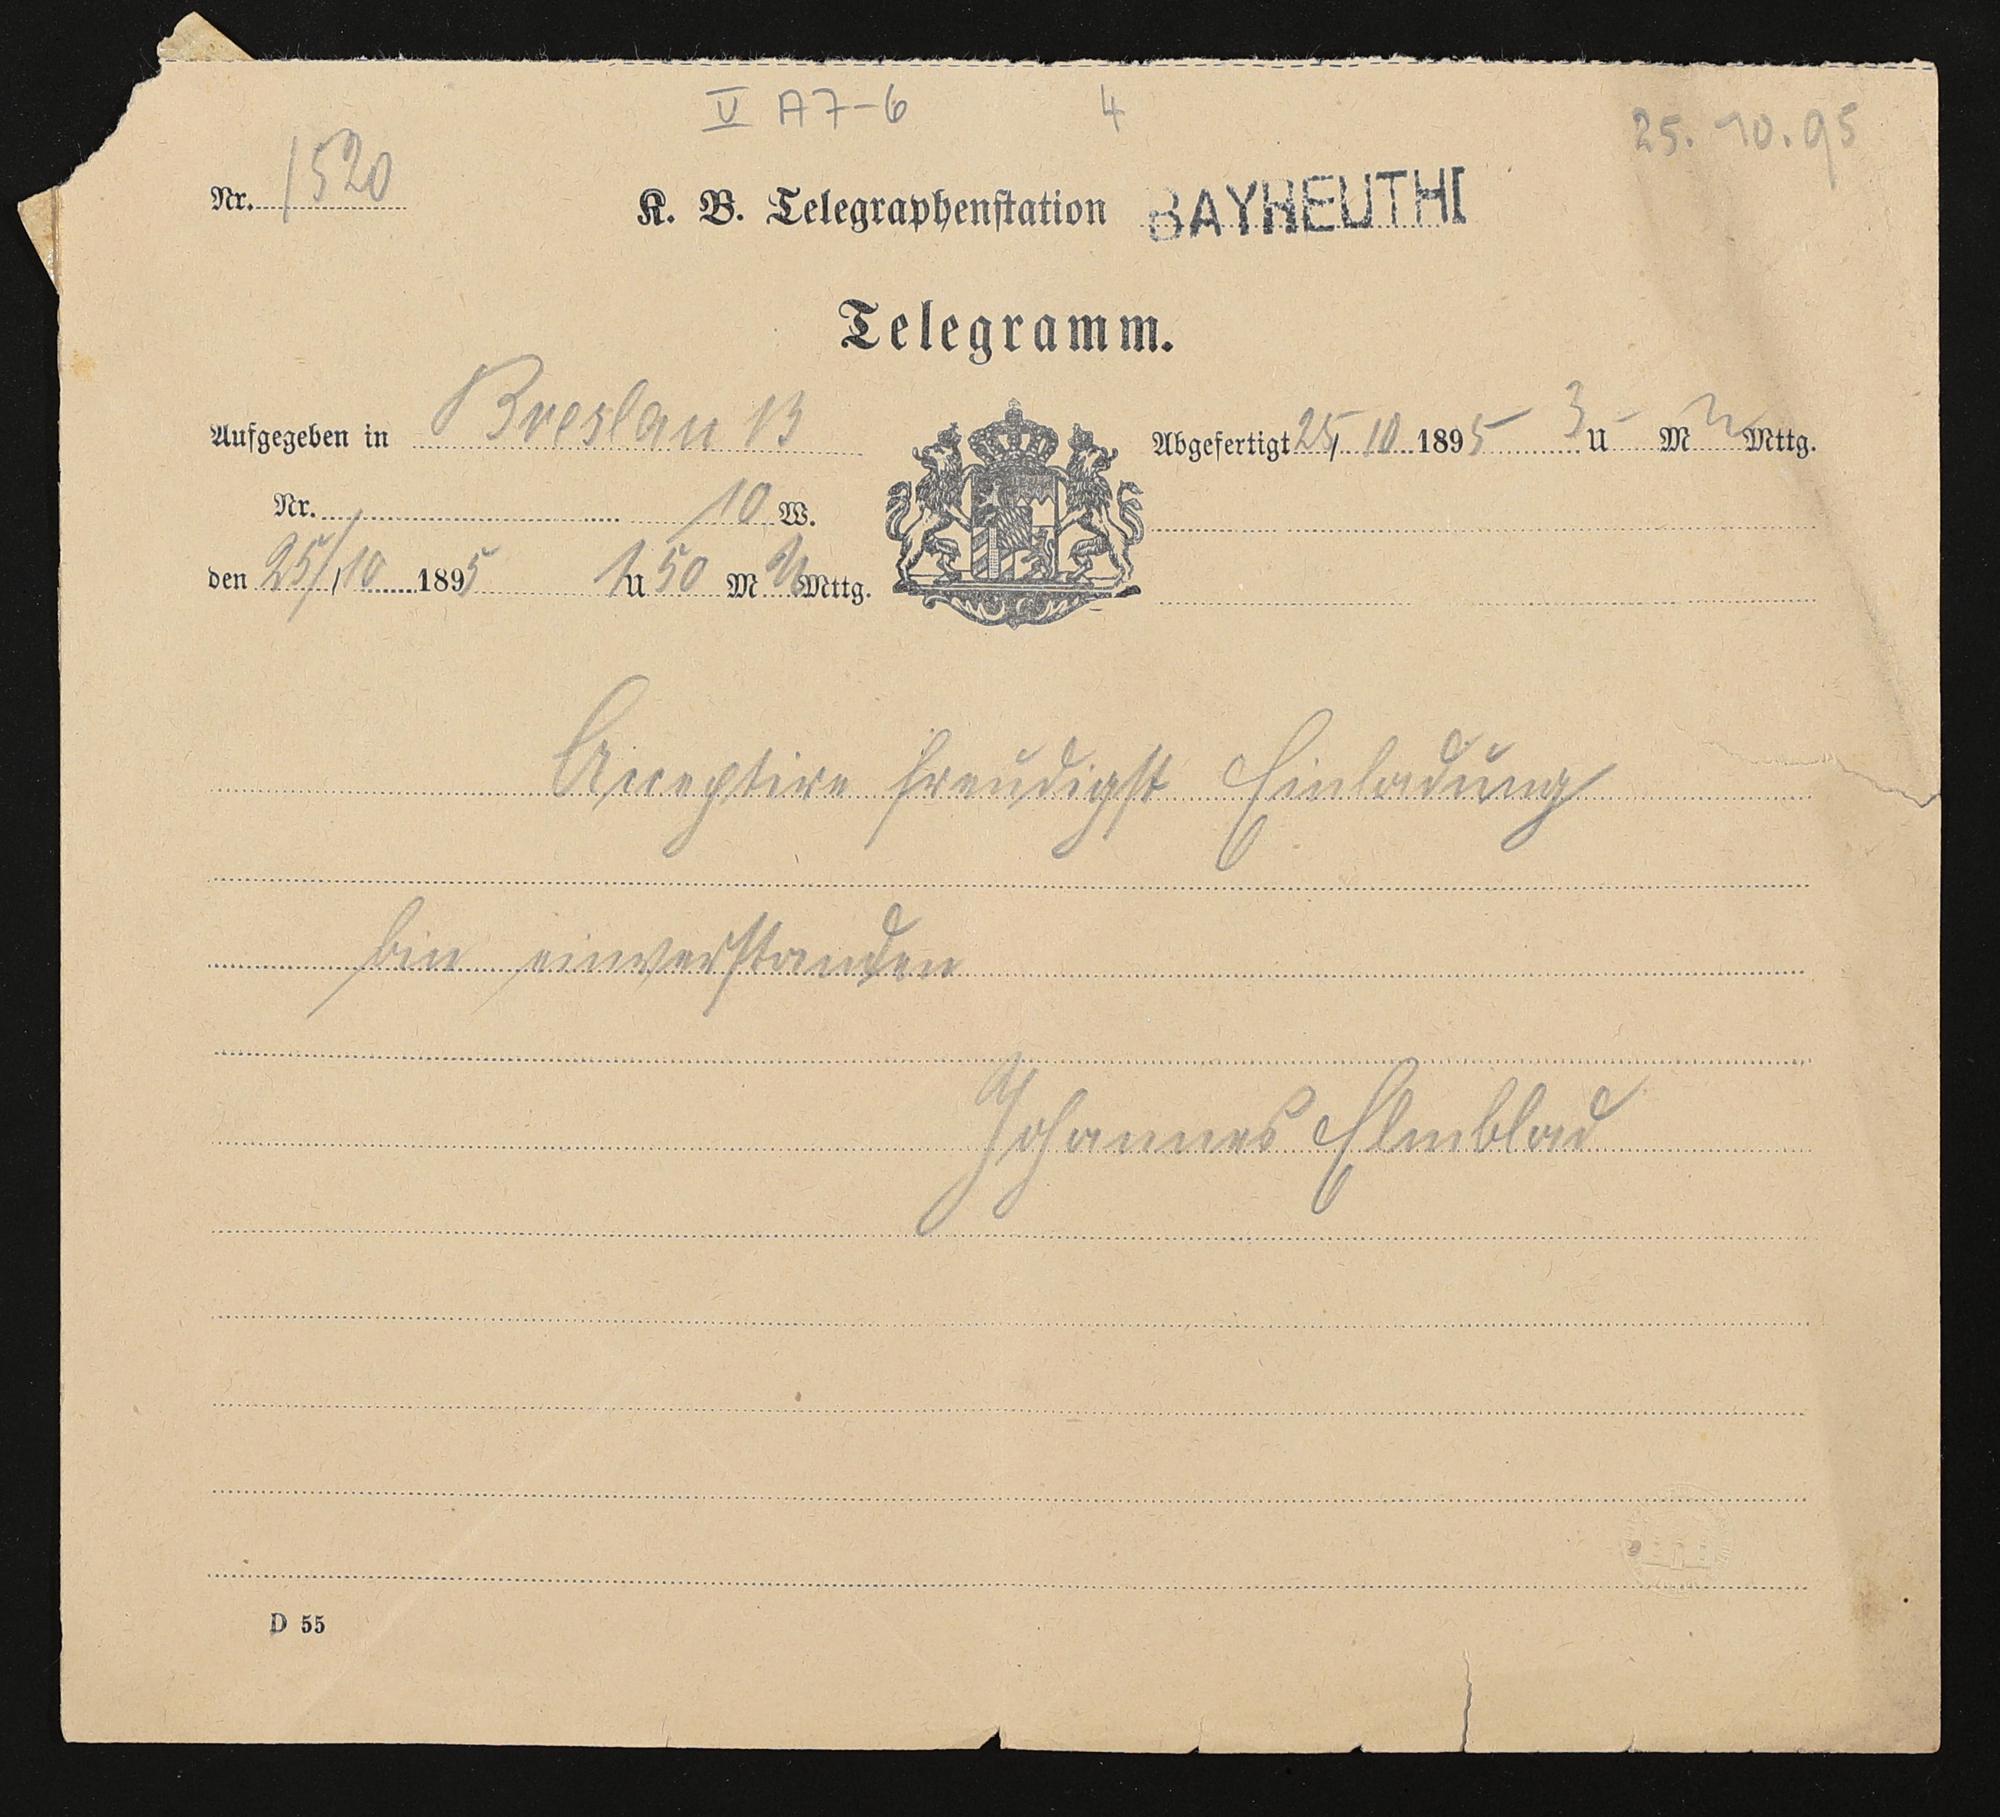 V A7-6 4 25. 10. 95
Nr. 1520 K. B. Telegraphenstation BAYREUTH I
Telegramm.
Aufgegeben in Breslau 13 Abgefertigt 25/10 1895 3 U - M N Mttg.
Nr. 10 W.
den 25/10 1895 1 U 50 M N Mttg.
Acceptire freudigst Einladung
bin einverstanden
Johannes Elmblad
D 55